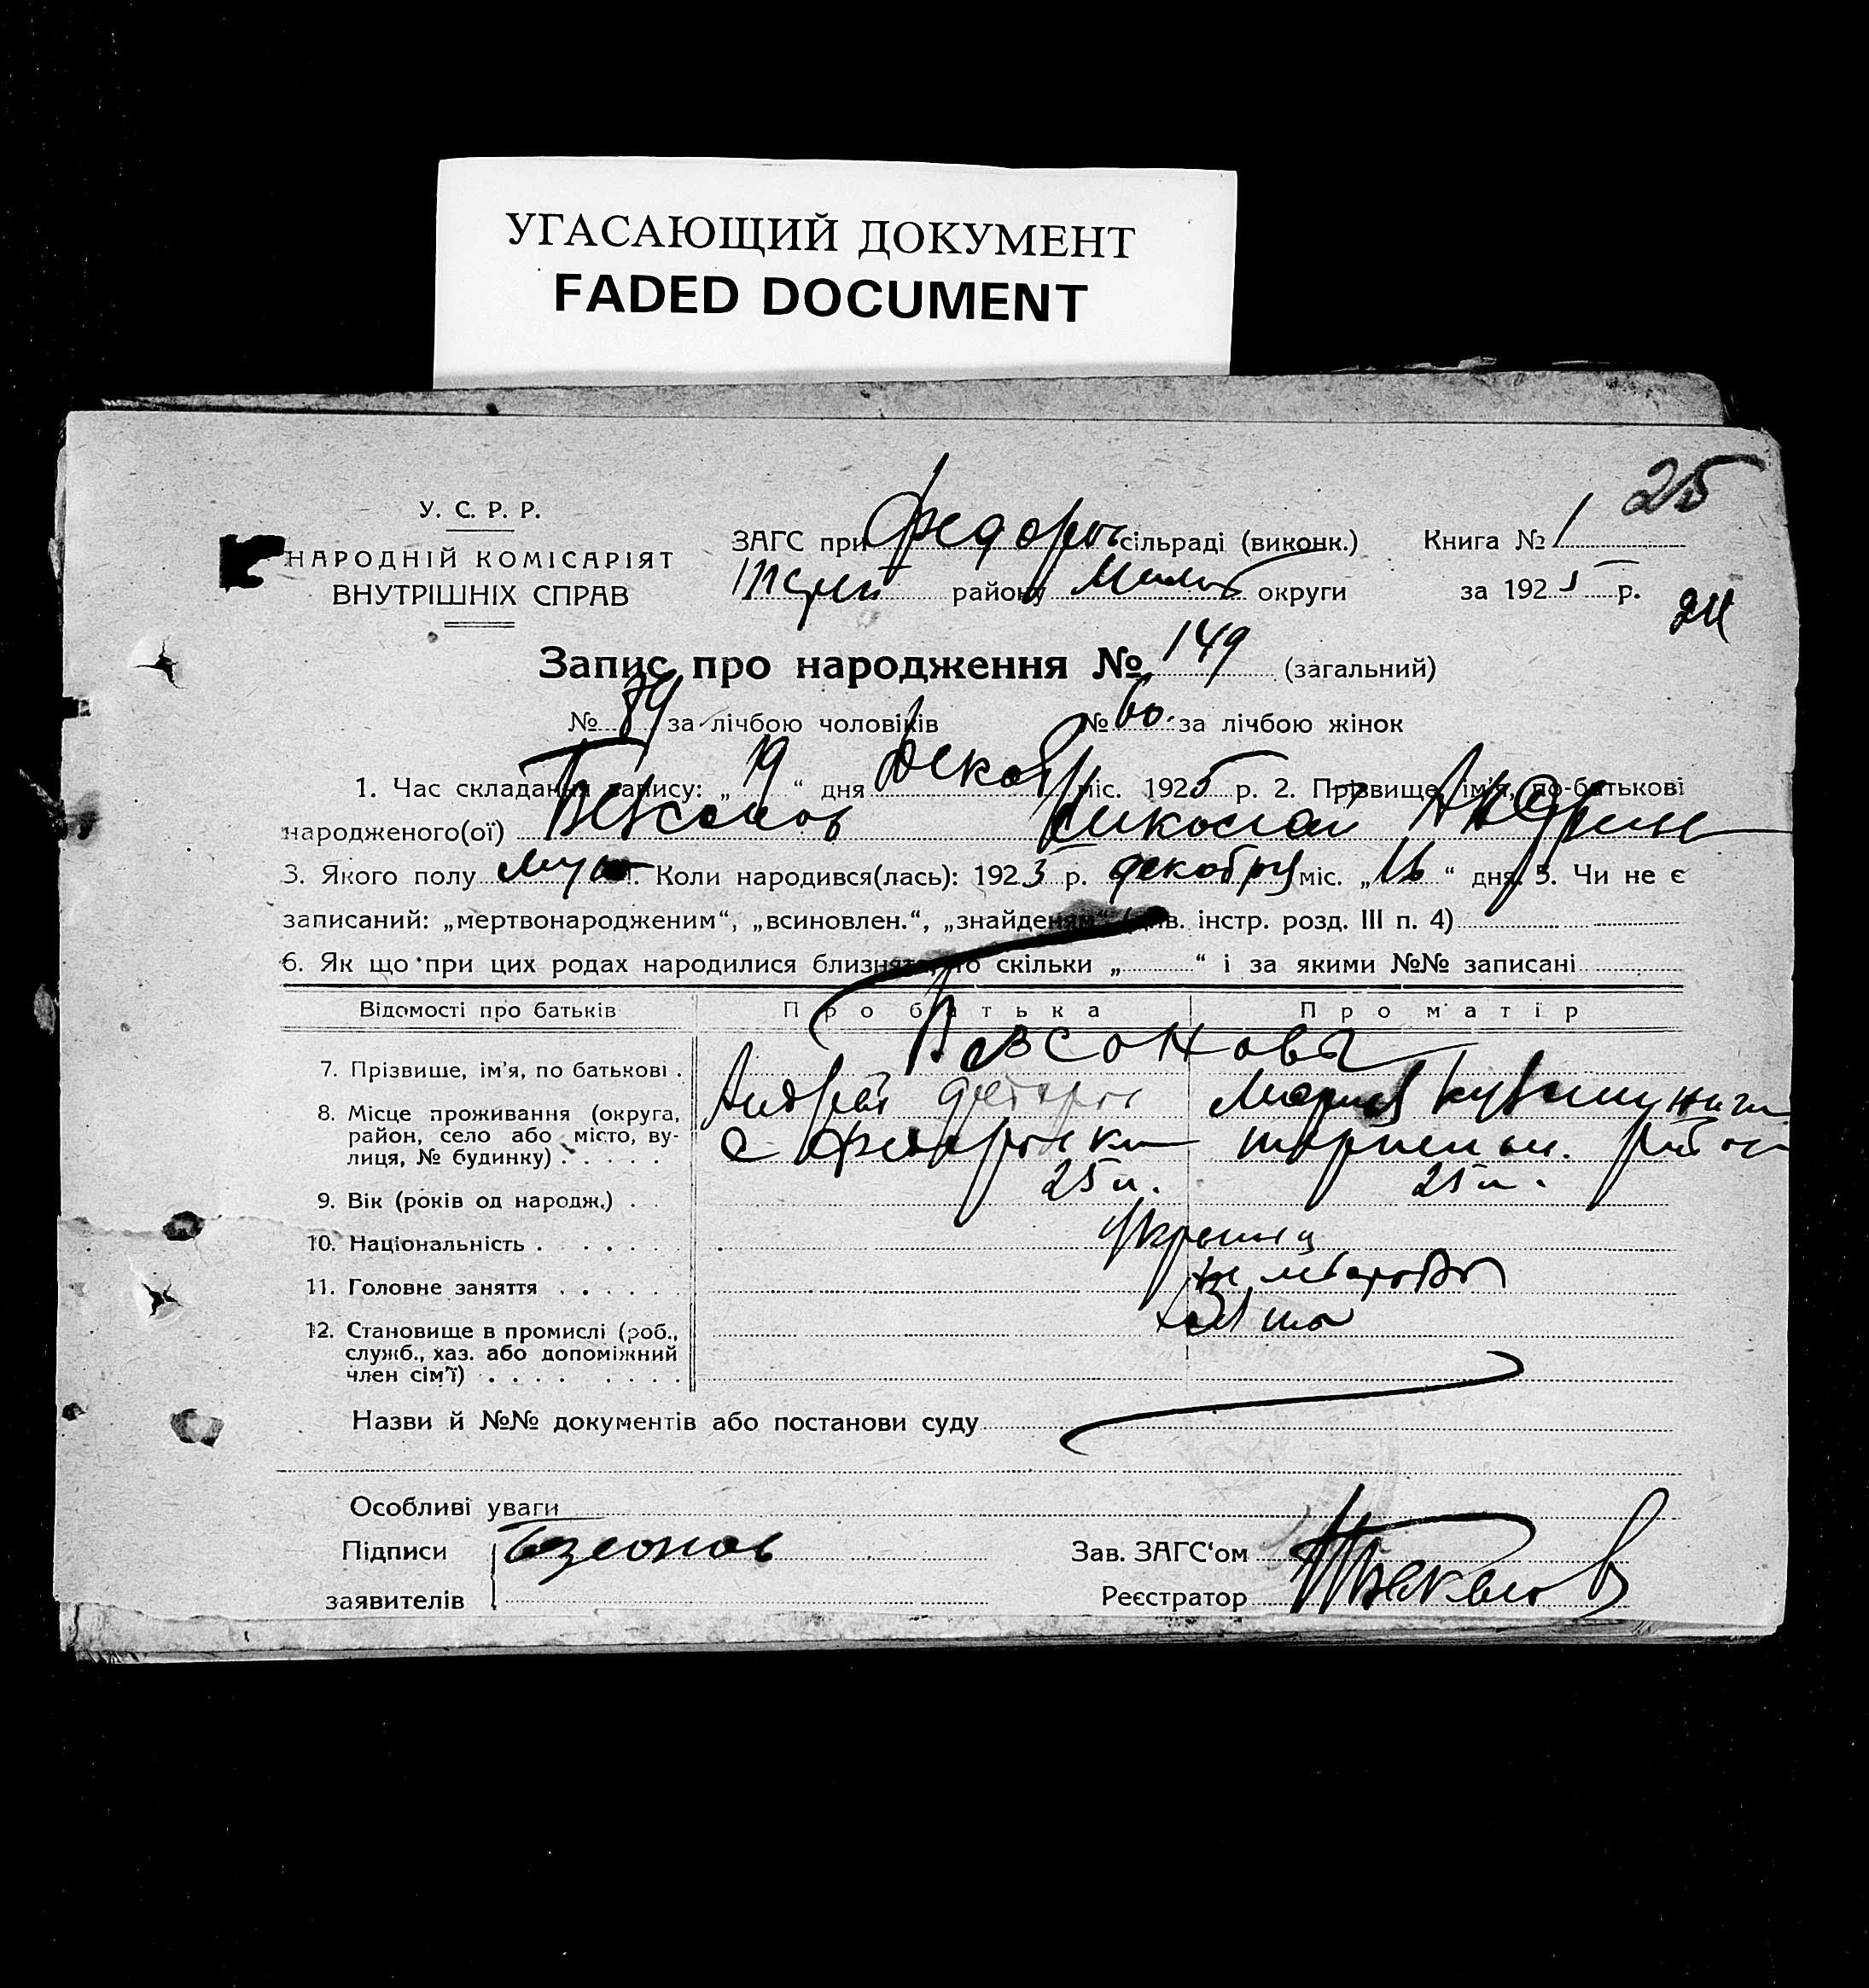 УГАСАЮЩИЙ ДОКУМЕНТ
FADED DOCUMENT
25
У. С. Р. Р.
НАРОДНІЙ КОМІСАРІЯТ
ВНУТРІШНІХ СПРАВ
ЗАГС при Федоров сільраді (виконк.) Книга № 1
району Мелит округи за 1925 р.
24
Запис про народження № 149 (загальний)
№ 89 за лічбою чоловіків № 60. за лічбою жінок
1. Час складання запису: „19“ дня декабр міс. 1925 р. 2. Прізвище, ім'я, по-батькові
народженого(ої) Безсонов Николай Андреев
3. Якого полу муж 4. Коли народився(лась): 1925 р. декабру міс. „16“ дня. 5. Чи не є
записаний: „мертвонародженим“, „всиновлен.“, „знайденям“ (див. інстр. розд. III п. 4)
6. Як що при цих родах народилися близнята, то скільки „ “ і за якими №№ записані
Відомості про батьків Про батька Про матір
7. Прізвище, ім'я, по батькові . Безсоновы
Андрей Мария
8. Місце проживання (округа, район, село або місто, вулиця, № будинку) . . . . . с Федоровка
9. Вік (років од народж.) . . 25 л. 25 л.
10. Національність . . . . . . Украинц
11. Головне заняття . . . . . .
12. Становище в промислі (роб., служб., хаз. або допоміжний член сім'ї) . . . . . . . .
Назви й №№ документів або постанови суду
Особливі уваги
Підписи Безсонов Зав. ЗАГС'ом
заявителів Реєстратор